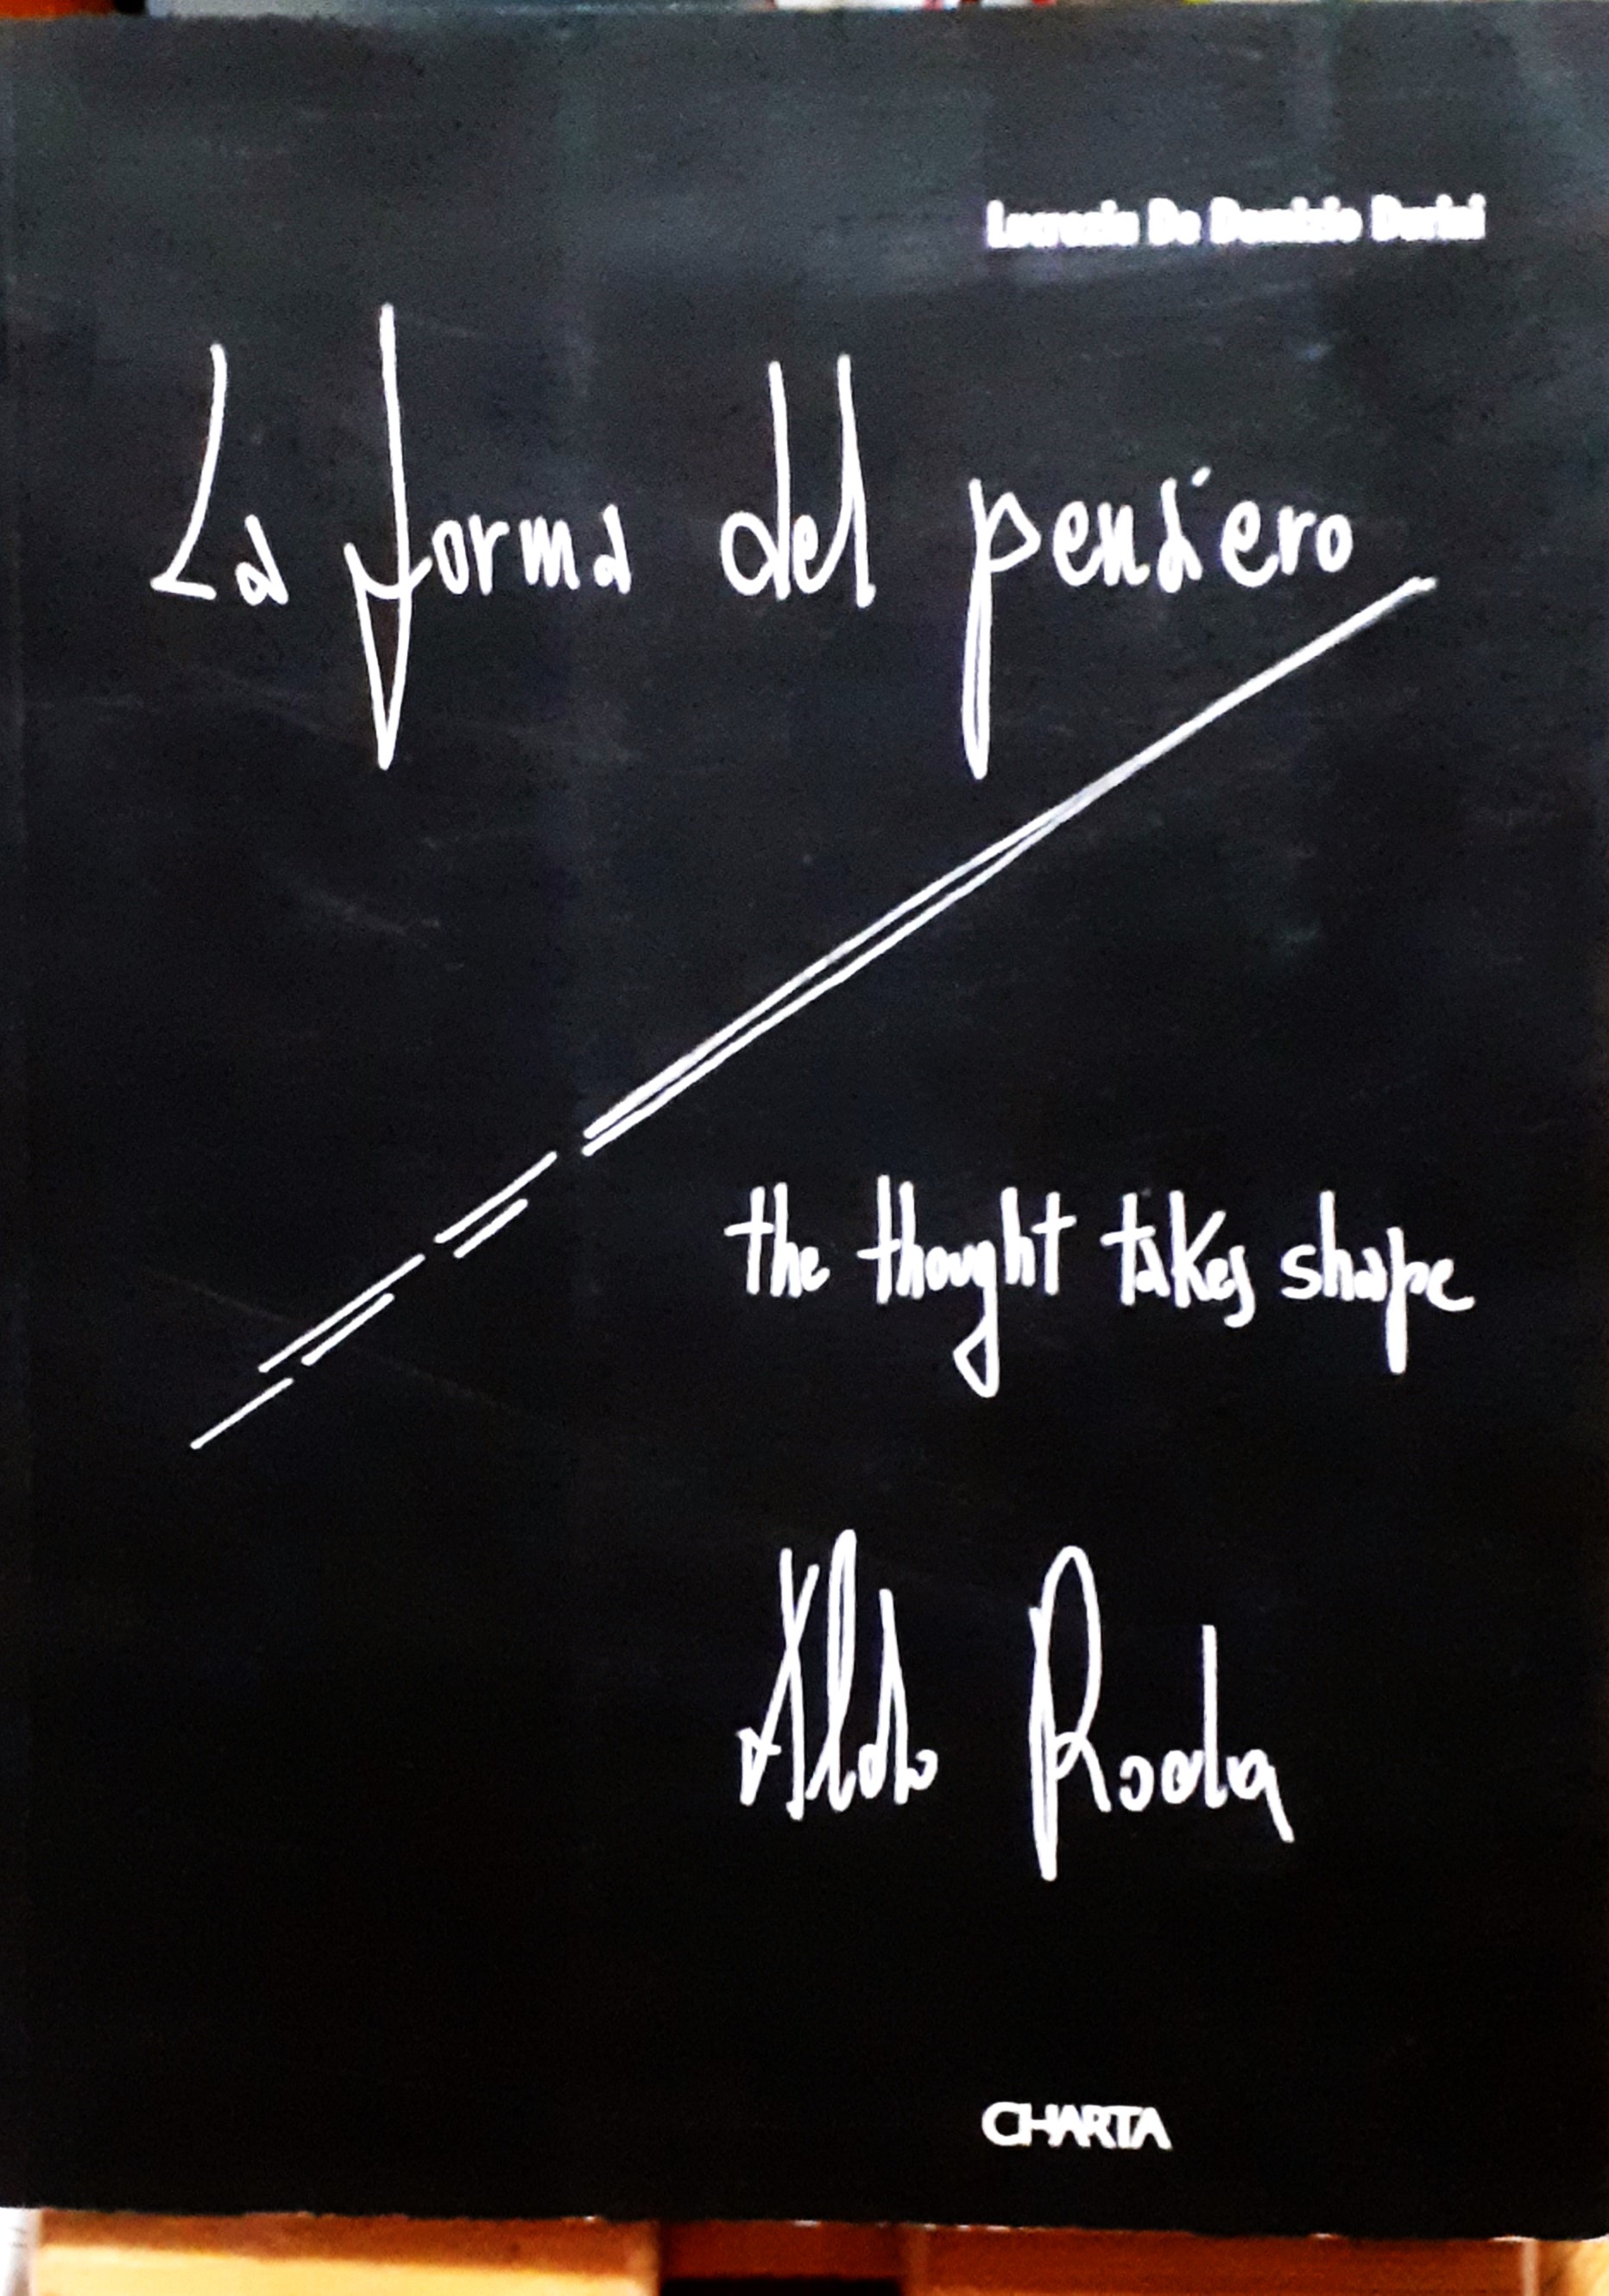 Lucrezia De Domizio Durini
La forma del pensiero
the thought takes shape
Aldo Roda
CHARTA